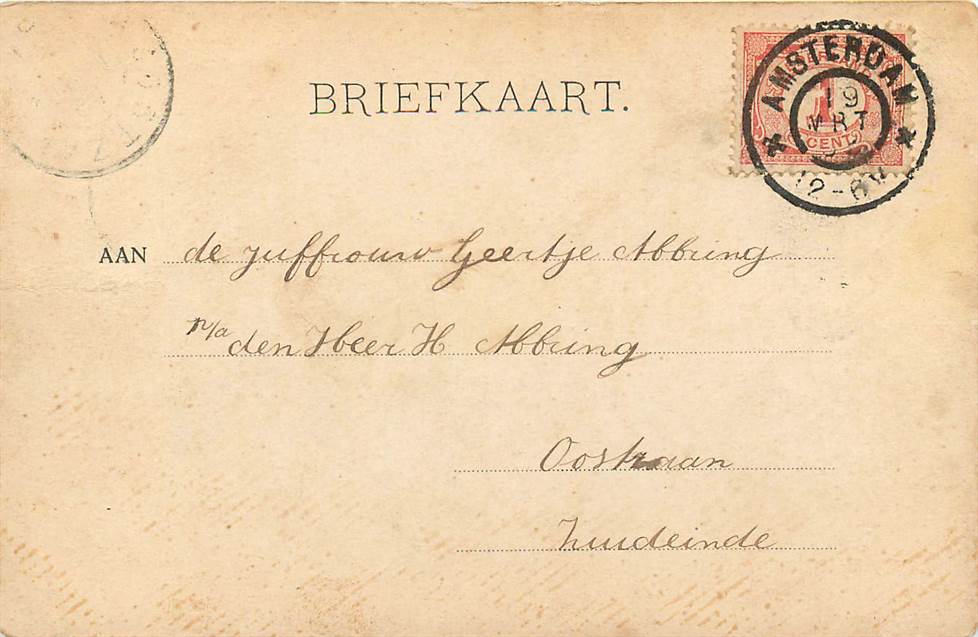 BRIEFKAART.
AMSTERDAM
19
MRT
12-6V
1
CENT
AAN de juffrouw Geertje Abbring
p/a den Heer H Abbring
Oostzaan
Zuideinde